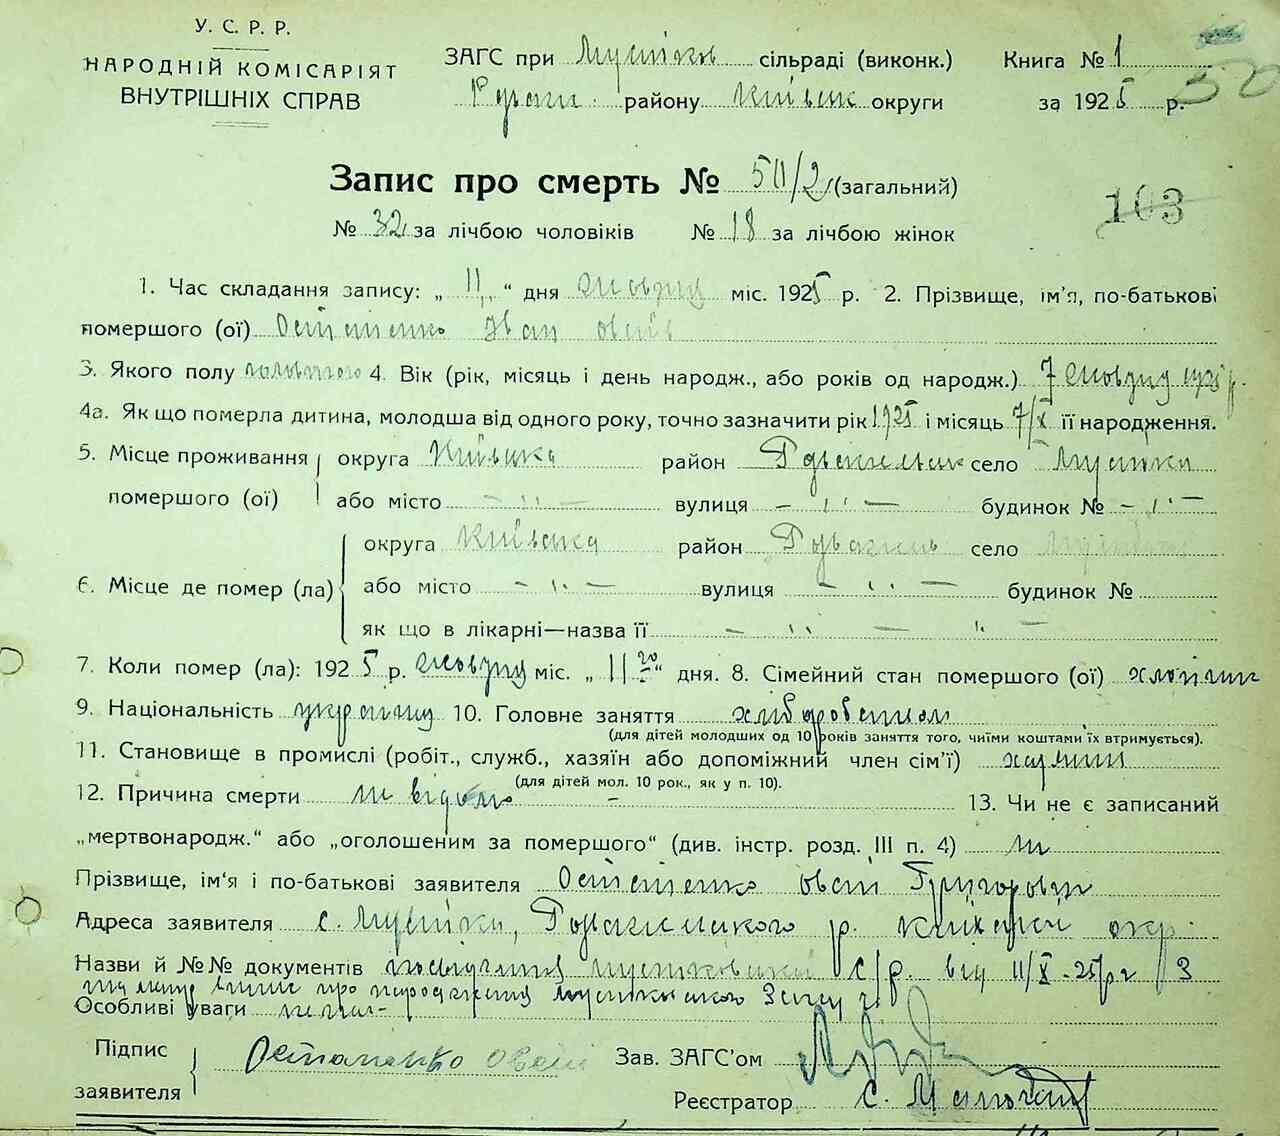 У. С. Р. Р.
НАРОДНІЙ КОМІСАРІЯТ
ВНУТРІШНІХ СПРАВ
ЗАГС при сільраді (виконк.)
району Київськ округи
Книга № 1
за 1925 р.
50
Запис про смерть № 50/2 (загальний)
№ 32 за лічбою чоловіків № 18 за лічбою жінок
103
1. Час складання запису: „ 11 “ дня жовтня міс. 1925 р. 2. Прізвище, ім'я, по-батькові
помершого (ої) Остапенко Іван
3. Якого полу 4. Вік (рік, місяць і день народж., або років од народж.) 7 жовтня 1925 р.
4а. Як що померла дитина, молодша від одного року, точно зазначити рік 1925 і місяць 7/X її народження.
5. Місце проживання помершого (ої) округа Київська район село
або місто — " — вулиця — " — будинок № — " —
6. Місце де помер (ла) округа Київська район село
або місто — " — вулиця — " — будинок №
як що в лікарні—назва її — " — " —
7. Коли помер (ла): 1925 р. жовтня міс. „ 11го “ дня. 8. Сімейний стан помершого (ої) хлопчик
9. Національність 10. Головне заняття хліборобством
(для дітей молодших од 10 років заняття того, чиїми коштами їх втримується).
11. Становище в промислі (робіт., служб., хазяїн або допоміжний член сім'ї)
(для дітей мол. 10 рок., як у п. 10).
12. Причина смерти не відомо — 13. Чи не є записаний
„мертвонародж.“ або „оголошеним за помершого“ (див. інстр. розд. III п. 4) ні
Прізвище, ім'я і по-батькові заявителя Остапенко Овсій Григорович
Адреса заявителя с. р. окр.
Назви й №№ документів с/р. від 11/X-25р
про народження
Особливі уваги немає
Підпис заявителя Остапенко Овсій Зав. ЗАГС'ом
Реєстратор С.